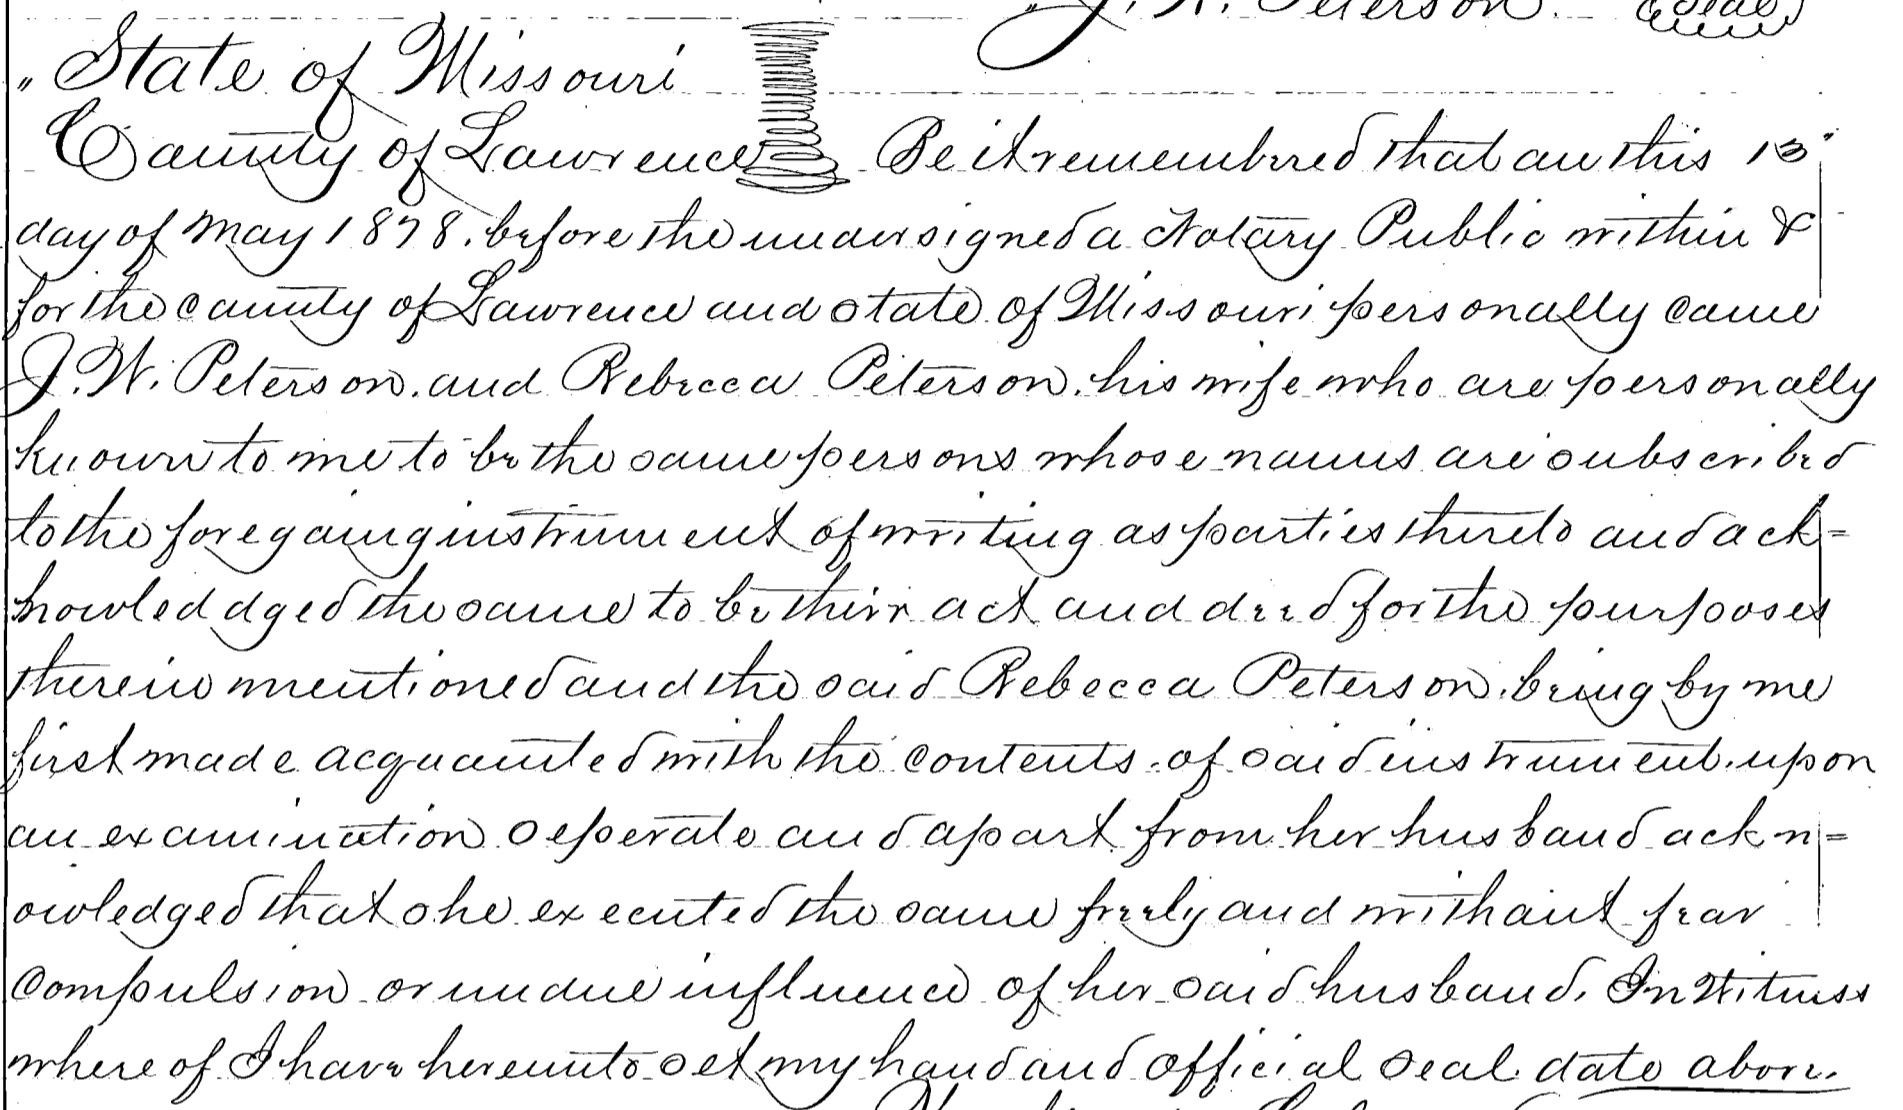 J. W. Peterson. (Seal)
" State of Missouri
County of Lawrence Be it remembered that on this 13"
day of May 1878. before the undersigned a Notary Public within &
for the County of Lawrence and state of Missouri personally came
J. W. Peterson. and Rebecca Peterson. his wife who are personally
known to me to be the same persons whose names are subscribed
to the foregoing instrument of writing as parties thereto and ack=
nowleddged the same to be their act and deed for the purposes
therein mentioned and the said Rebecca Peterson. being by me
first made acquainted with the contents. of said instrument. upon
an examination seperate and apart from her husband ackn=
owledged that she executed the same freely and without fear
compulsion or undue influence of her said husband. In Witness
where of I have hereunto set my hand and official seal. date above.